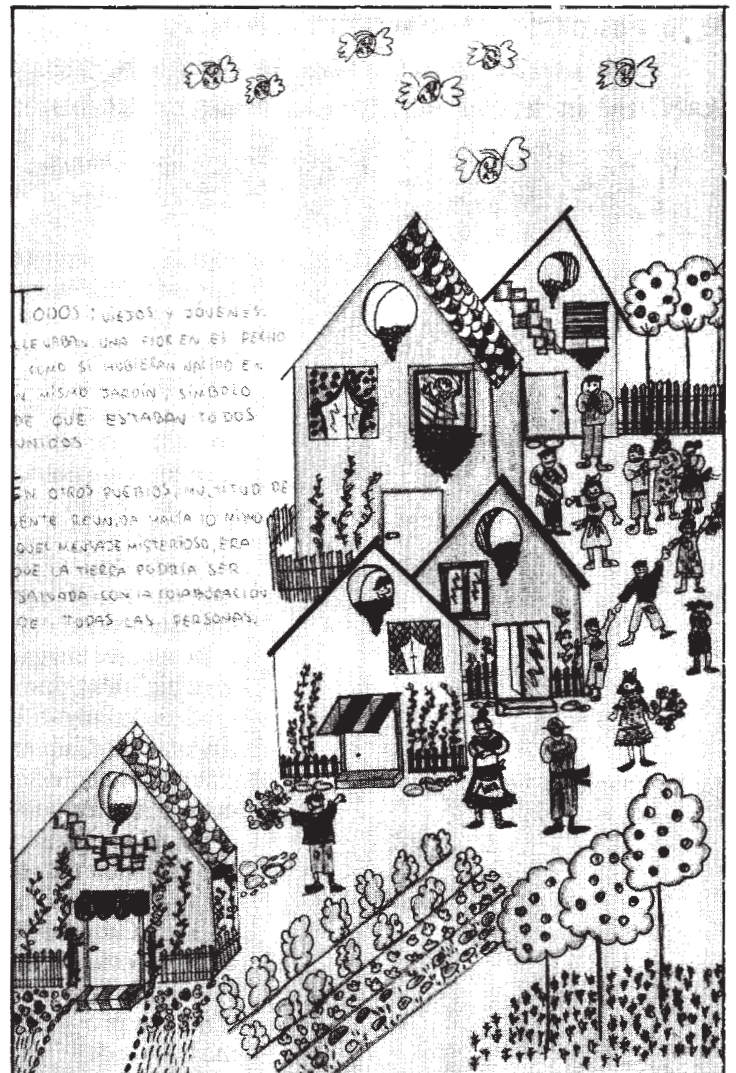 TODOS, VIEJOS Y JÓVENES,
LLEVABAN UNA FLOR EN EL PECHO
COMO SI HUBIERAN NACIDO EN
UN MISMO JARDÍN, SÍMBOLO
DE QUE ESTABAN TODOS
UNIDOS
EN OTROS PUEBLOS, MULTITUD DE
GENTE REUNIDA HACÍA LO MISMO
AQUEL MENSAJE MISTERIOSO, ERA
QUE LA TIERRA PODRÍA SER
SALVADA CON LA COLABORACIÓN
DE TODAS LAS PERSONAS.